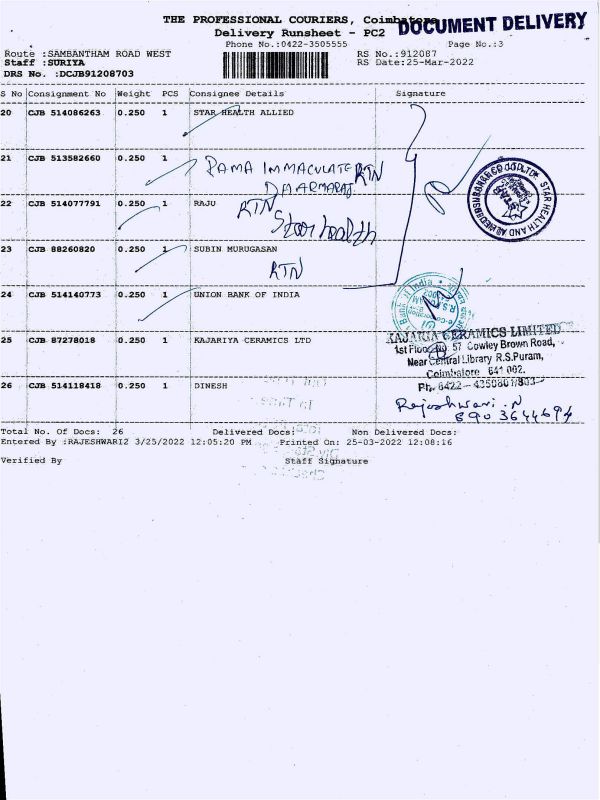 THE PROFESSIONAL COURIERS, Coimbatore
DOCUMENT DELIVERY
Delivery Runsheet - PC2
Phone No.:0422-3505555
Page No.:3
Route :SAMBANTHAM ROAD WEST
RS No.:912087
Staff :SURIYA
RS Date:25-Mar-2022
DRS No. :DCJB91208703
S No Consignment No Weight PCS Consignee Details Signature
20 CJB 514086263 0.250 1 STAR HEALTH ALLIED
21 CJB 513582660 0.250 1 RAMA IMMACULATE RTN
DHARMARAJ.
22 CJB 514077791 0.250 1 RAJU RTN
Star health
23 CJB 88260820 0.250 1 SUBIN MURUGASAN
RTN
24 CJB 514140773 0.250 1 UNION BANK OF INDIA
25 CJB 87278018 0.250 1 KAJARIYA CERAMICS LTD
KAJARIA CERAMICS LIMITED
1st Floor, No. 57 Cowley Brown Road,
Near Central Library R.S.Puram,
Coimbatore 641 002.
26 CJB 514118418 0.250 1 DINESH
Ph. 0422 - 4350801/803
Rajeshwari .N
8903644694
Total No. Of Docs: 26 Delivered Docs: Non Delivered Docs:
Entered By :RAJESHWARI2 3/25/2022 12:05:20 PM Printed On: 25-03-2022 12:08:16
Verified By Staff Signature